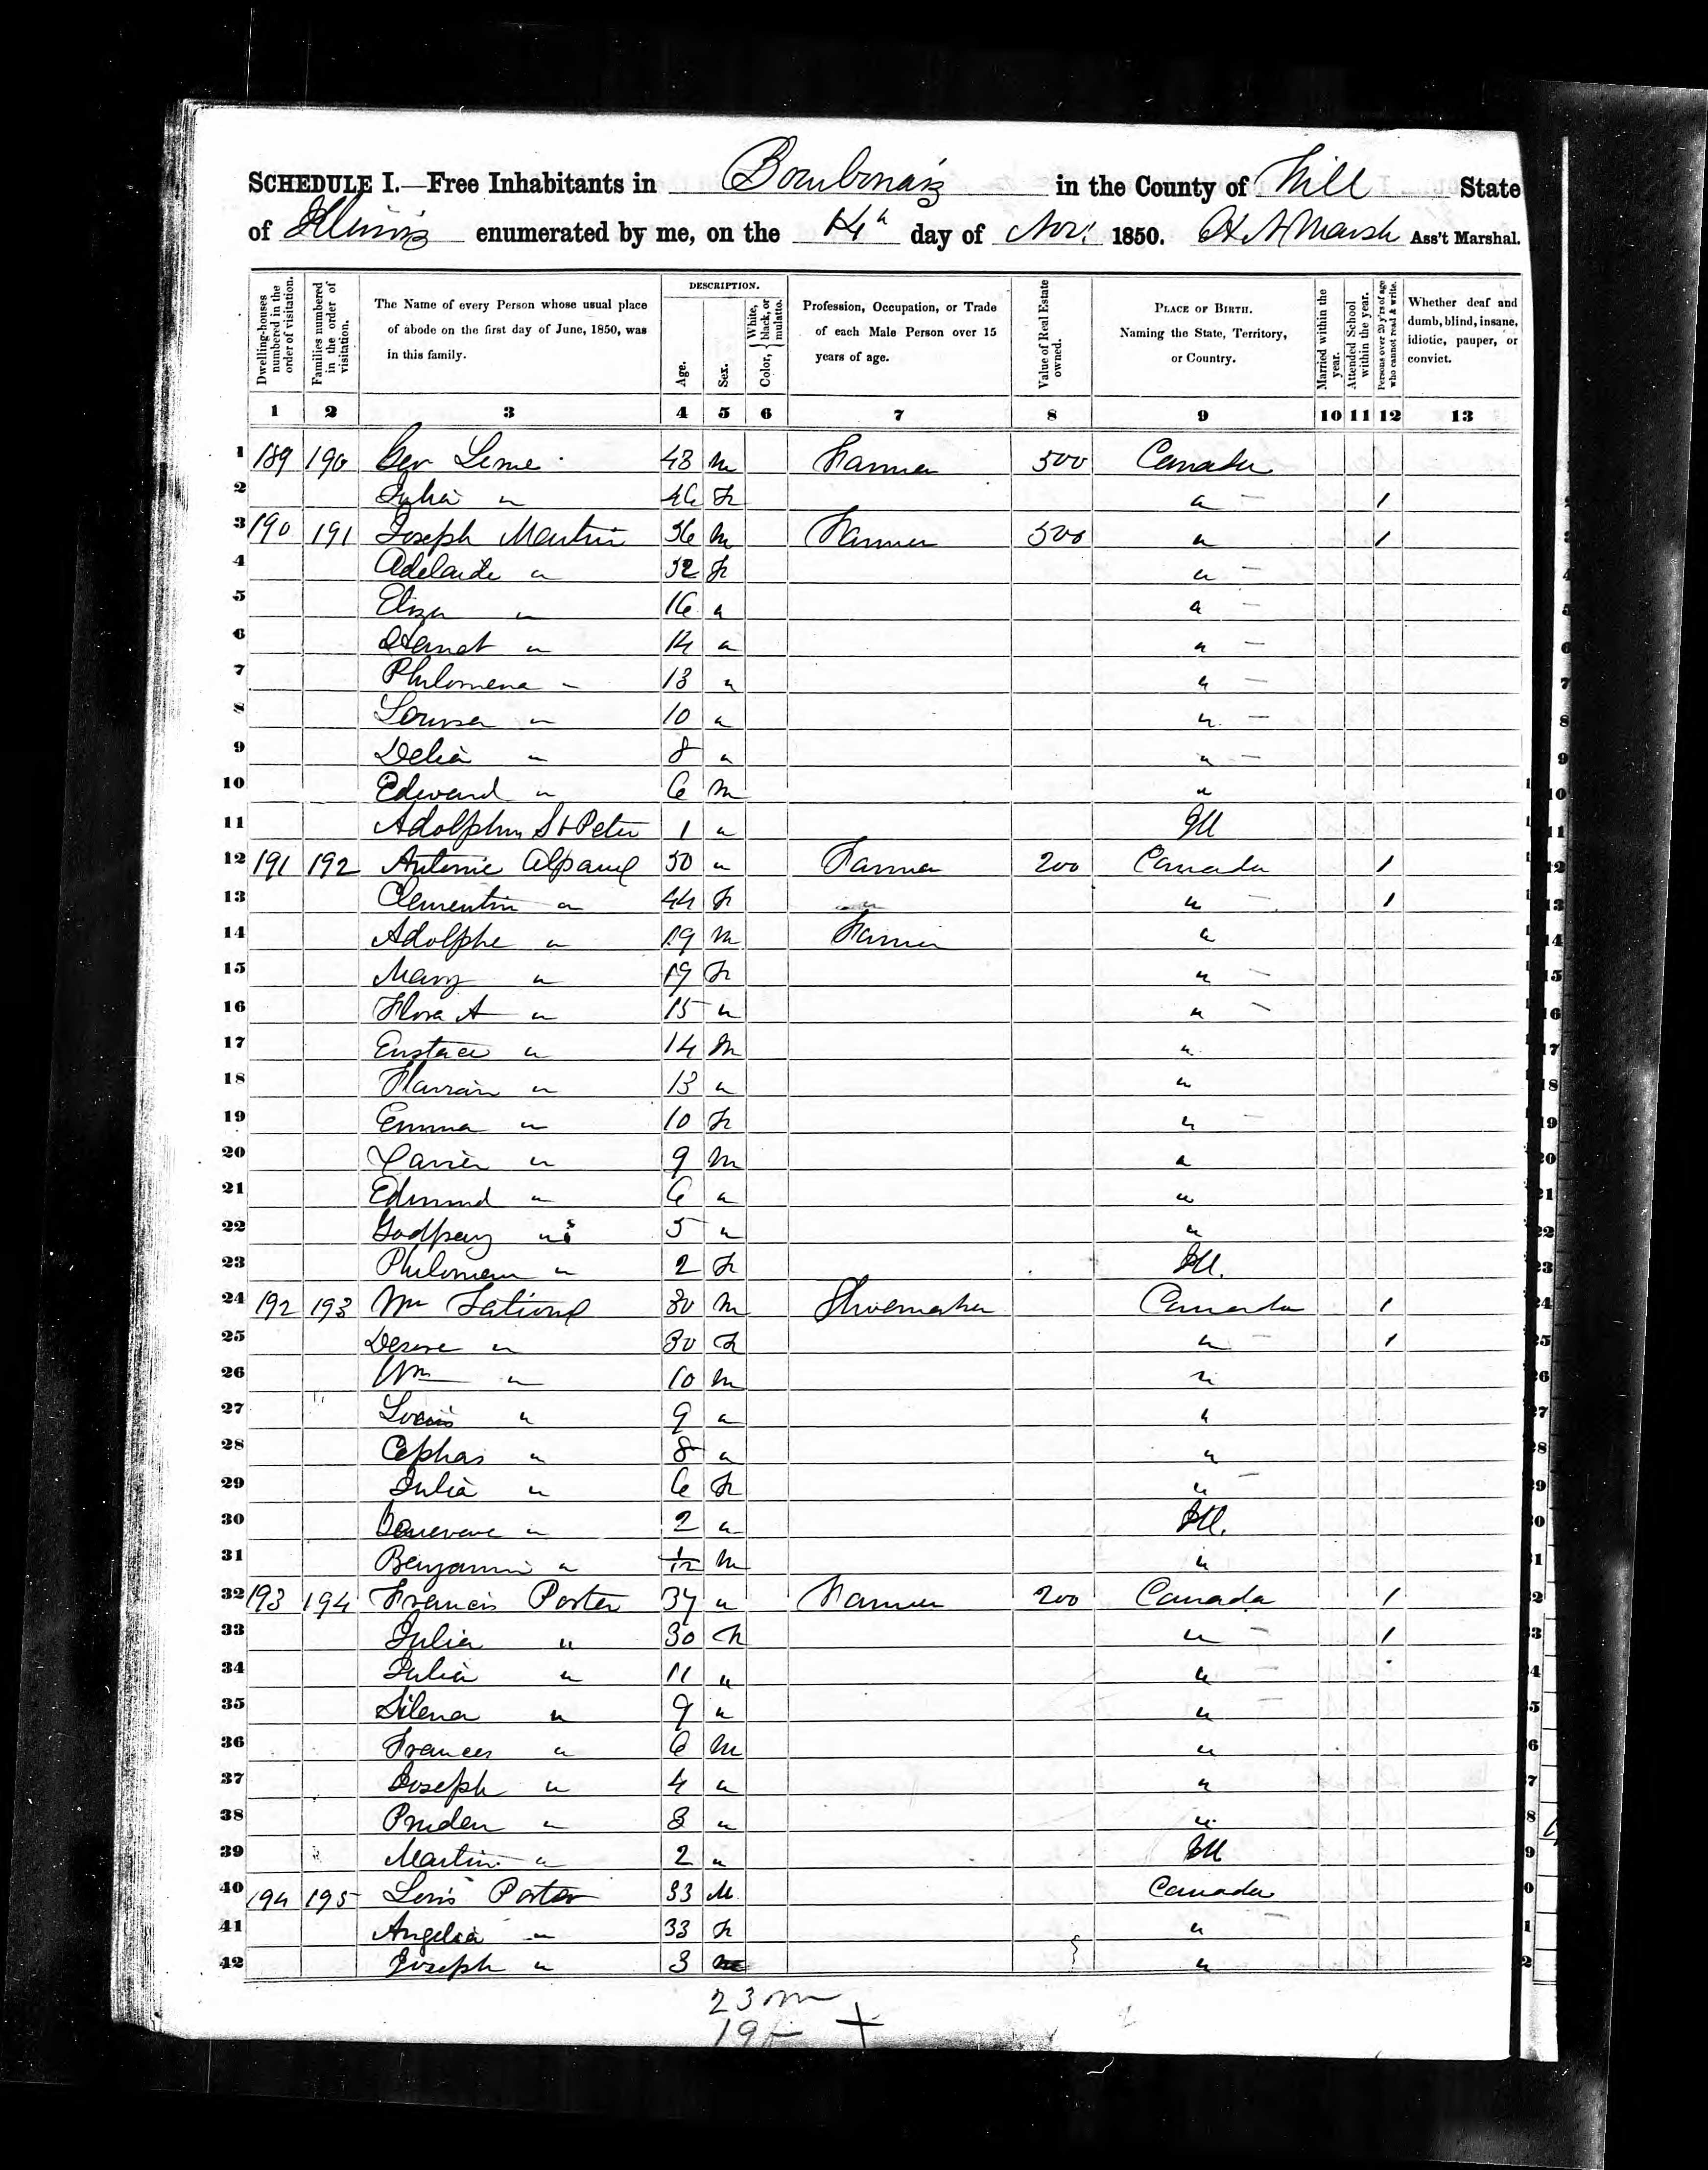 SCHEDULE I.—Free Inhabitants in Bourbonais in the County of Will State
of Illinois enumerated by me, on the 14th day of Nov. 1850. A N Marsh Ass't Marshal.
Dwelling-houses numbered in the order of visitation.
Families numbered in the order of visitation.
The Name of every Person whose usual place of abode on the first day of June, 1850, was in this family.
DESCRIPTION.
Age.
Sex.
Color, { White, black, or mulatto.
Profession, Occupation, or Trade of each Male Person over 15 years of age.
Value of Real Estate owned.
PLACE OF BIRTH. Naming the State, Territory, or Country.
Married within the year.
Attended School within the year.
Persons over 20 y'rs of age who cannot read & write.
Whether deaf and dumb, blind, insane, idiotic, pauper, or convict.
1 2 3 4 5 6 7 8 9 10 11 12 13
1 189 190 Geo 43 m Farmer 500 Canada
2 Julia " 46 F " 1
3 190 191 Joseph Martin 36 m Farmer 500 " 1
4 Adelaide " 32 F "
5 Eliza " 16 " "
6 " 14 " "
7 Philomena " 13 " "
8 Louisa " 10 " "
9 Delia " 8 " "
10 Edward " 6 m "
11 Adolphus St Peter 1 " Ill
12 191 192 Antonie 50 " Farmer 200 Canada 1
13 Clementin " 44 F " 1
14 Adolphe " 19 m Farmer "
15 Mary " 19 F "
16 Flora A " 15 " "
17 Eustace " 14 m "
18 " 13 " "
19 Emma " 10 F "
20 " 9 m "
21 Edmund " 6 " "
22 Godfrey " 5 " "
23 Philomena " 2 F Ill.
24 192 193 Wm 30 m Shoemaker Canada 1
25 " 30 F " 1
26 Wm " 10 m "
27 Louis " 9 " "
28 Cephas " 8 " "
29 Julia " 6 F "
30 " 2 " Ill.
31 Benjamin " 1/12 m "
32 193 194 Francis Porter 37 " Farmer 200 Canada 1
33 Julia " 30 F " 1
34 Julia " 11 " "
35 Silena " 9 " "
36 Frances " 6 m "
37 Joseph " 4 " "
38 Pruden " 3 " "
39 Martin " 2 " Ill
40 194 195 Louis Porter 33 M Canada
41 Angelia " 33 F "
42 Joseph " 3 m "
23 m
19 f +